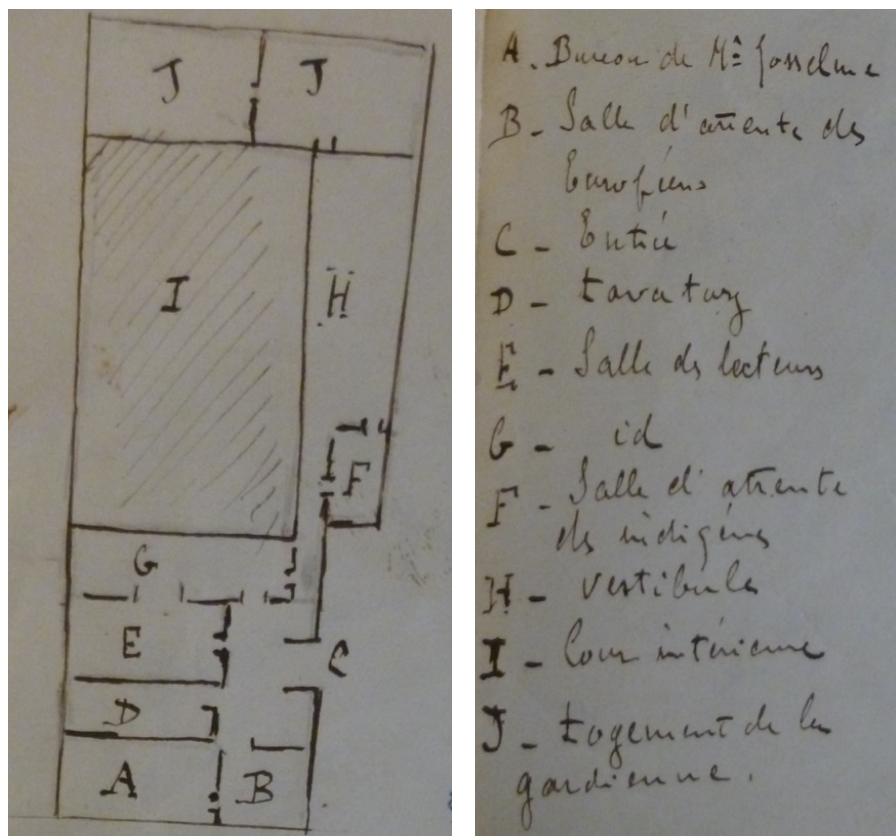 J J
I
H
F
G
E
C
D
A
B
A. Bureau de Mᵉ Josselme
B - Salle d'attente des
Européens
C - Entrée
D - Lavatory
E - Salle des lecteurs
G - id
F - Salle d'attente
des indigènes
H - Vestibule
I - Cour intérieure
J - Logement de la
gardienne.